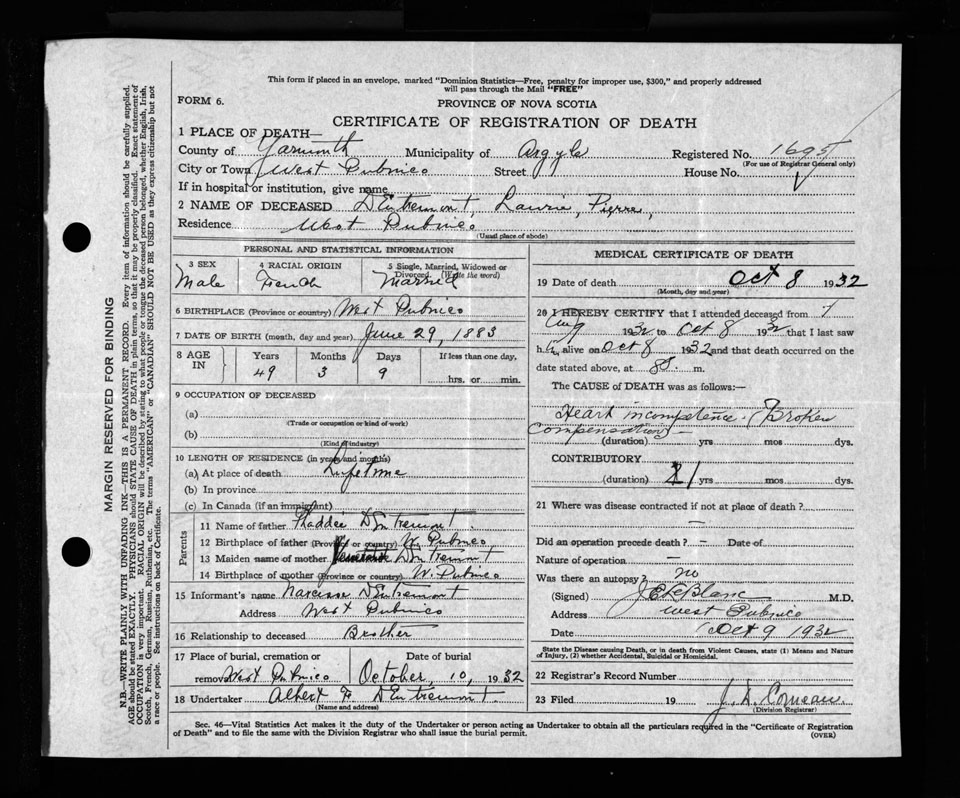 This form if placed in an envelope, marked "Dominion Statistics—Free, penalty for improper use, $300," and properly addressed
will pass through the Mail "FREE"
FORM 6.
PROVINCE OF NOVA SCOTIA
CERTIFICATE OF REGISTRATION OF DEATH
1 PLACE OF DEATH—
County of Yarmouth Municipality of Argyle Registered No. 1695
(For use of Registrar General only)
City or Town West Pubnico Street House No.
If in hospital or institution, give name
2 NAME OF DECEASED D'Entremont, Laurie, Pierre,
Residence West Pubnico
(Usual place of abode)
PERSONAL AND STATISTICAL INFORMATION
3 SEX 4 RACIAL ORIGIN 5 Single, Married, Widowed or
Divorced. (Write the word)
Male French Married
6 BIRTHPLACE (Province or country) West Pubnico
7 DATE OF BIRTH (month, day and year) June 29, 1883
8 AGE IN Years Months Days If less than one day,
49 3 9 hrs. or min.
9 OCCUPATION OF DECEASED
(a)
(Trade or occupation or kind of work)
(b)
(Kind of industry)
10 LENGTH OF RESIDENCE (in years and months)
(a) At place of death Life time
(b) In province
(c) In Canada (if an immigrant)
Parents
11 Name of father Thaddée D'Entremont
12 Birthplace of father (Province or country) W. Pubnico
13 Maiden name of mother D'Entremont
14 Birthplace of mother (Province or country) W. Pubnico
15 Informant's name Narcisse D'Entremont
Address West Pubnico
16 Relationship to deceased Brother
17 Place of burial, cremation or removal Date of burial
West Pubnico October, 10, 1932
18 Undertaker Albert F. D'Entremont.
(Name and address)
MEDICAL CERTIFICATE OF DEATH
19 Date of death Oct 8 1932
(Month, day and year)
20 I HEREBY CERTIFY that I attended deceased from
Aug 1932 to Oct 8 1932 that I last saw
h alive on Oct 8 1932 and that death occurred on the
date stated above, at m.
The CAUSE of DEATH was as follows:—
Heart incompetence (Broken
compensation)—
(duration) yrs mos dys.
CONTRIBUTORY
(duration) 1 yrs mos dys.
21 Where was disease contracted if not at place of death?
—
Did an operation precede death? — Date of
Nature of operation —
Was there an autopsy? no
(Signed) LeBlanc M.D.
Address West Pubnico
Date Oct 9 1932
State the Disease causing Death, or in death from Violent Causes, state (1) Means and Nature
of Injury, (2) whether Accidental, Suicidal or Homicidal.
22 Registrar's Record Number
23 Filed 19 J. A. Comeau.
(Division Registrar)
Sec. 46—Vital Statistics Act makes it the duty of the Undertaker or person acting as Undertaker to obtain all the particulars required in the "Certificate of Registration
of Death" and to file the same with the Division Registrar who shall issue the burial permit.
(OVER)
MARGIN RESERVED FOR BINDING
N.B.—WRITE PLAINLY WITH UNFADING INK—THIS IS A PERMANENT RECORD. Every item of information should be carefully supplied.
AGE should be stated EXACTLY. PHYSICIANS should STATE CAUSE OF DEATH in plain terms, so that it may be properly classified. Exact statement of
OCCUPATION is very important. RACIAL ORIGIN will be described by stating to what people or tongue the deceased person belonged, whether English, Irish,
Scotch, French, German, Russian, Ruthenian, etc. The terms "AMERICAN" or "CANADIAN" SHOULD NOT BE USED as they express citizenship but not
a race or people. See instructions on back of Certificate.